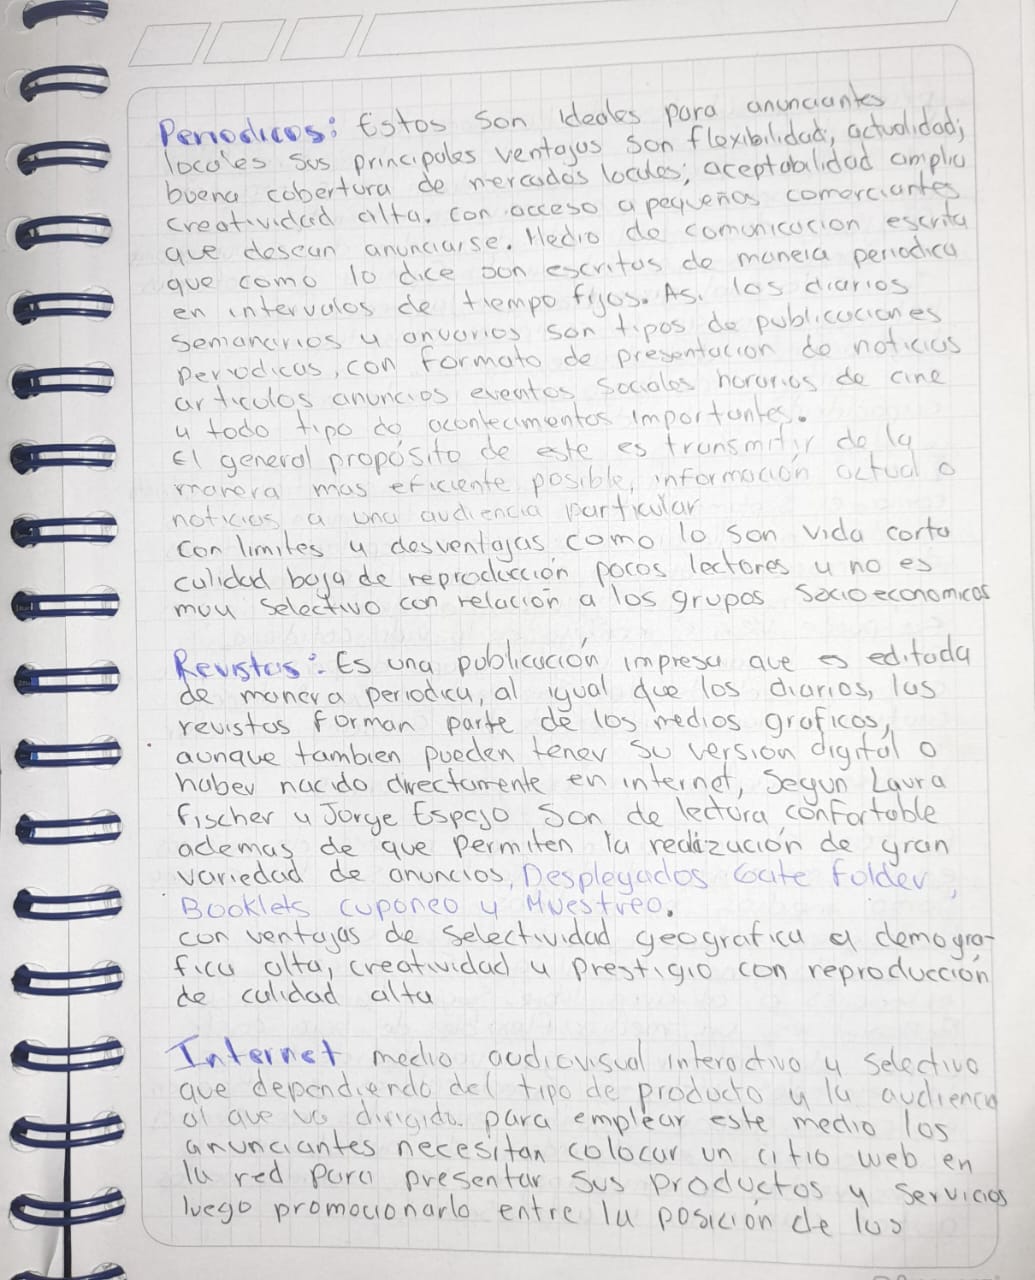 Periodicos: Estos son ideales para anunciantes
locales sus principales ventajas son flexibilidad, actualidad;
buena cobertura de mercados locales; aceptabilidad amplia
creatividad alta. con acceso a pequeños comerciantes
que desean anunciarse. Medio de comunicacion escrita
que como lo dice son escritas de manera periodica
en intervalos de tiempo fijos. Asi los diarios
semanarios y anuarios son tipos de publicaciones
periodicas, con formato de presentacion de noticias
articulos anuncios eventos sociales horarios de cine
y todo tipo de acontecimentos importantes.
El general propósito de este es transmitir de la
manera mas eficiente posible, información actual o
noticias a una audiencia particular
con limites y desventajas como lo son vida corta
calidad baja de reproducción pocos lectores y no es
muy selectivo con relación a los grupos socioeconomicos
Revistas: Es una publicación impresa que es editada
de manera periodica, al igual que los diarios, las
revistas forman parte de los medios graficos,
aunque tambien pueden tener su version digital o
haber nacido directamente en internet, Segun Laura
Fischer y Jorge Espejo Son de lectura confortable
ademas de que permiten la realización de gran
variedad de anuncios, Desplegados Gate folder,
Booklets cuponeo y Muestreo.
con ventajas de selectividad geografica y demogra-
fica alta, creatividad y prestigio con reproducción
de calidad alta
Internet medio audiovisual interactivo y selectivo
que dependiendo del tipo de producto y la audiencia
al que va dirigida. para emplear este medio los
anunciantes necesitan colocar un citio web en
la red para presentar sus productos y servicios
luego promocionarlo entre la posición de los